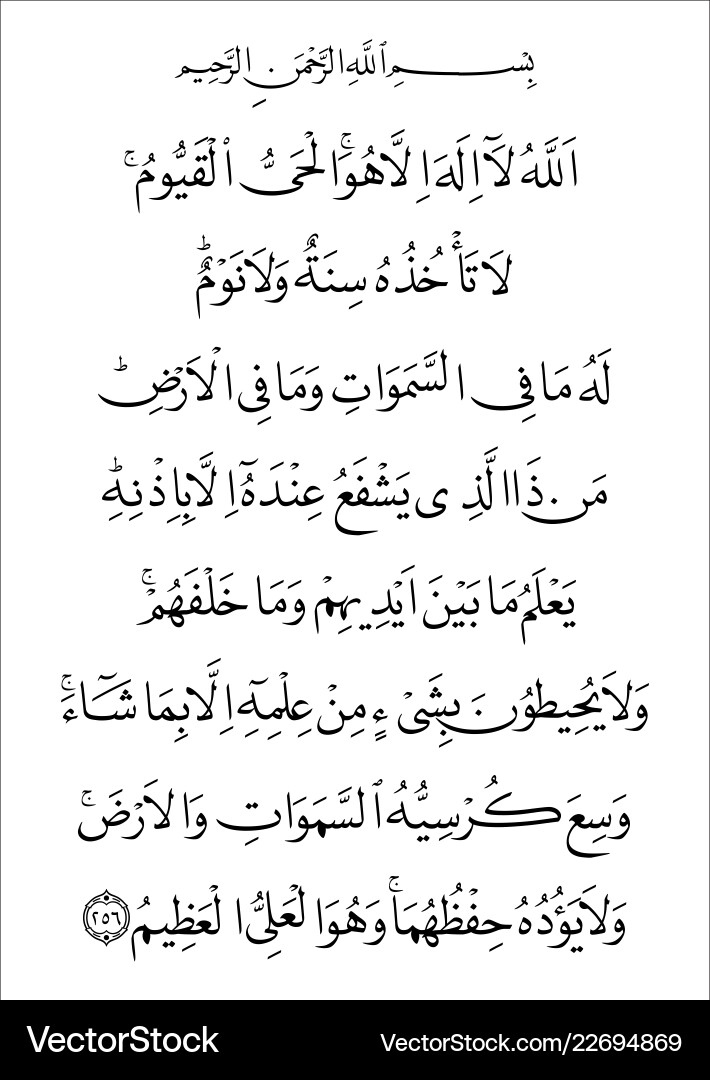 بِسْمِ ٱللَّهِ الرَّحْمَنِ الرَّحِيمِ
اَللَّهُ لَآ اِلَهَ اِلَّا هُوَ الْحَىُّ ٱلْقَيُّومُ ۚ
لَا تَأْخُذُهُ سِنَةٌ وَلَا نَوْمٌ ؕ
لَهُ مَا فِى السَّمَوَاتِ وَمَا فِى الْاَرْضِ ؕ
مَن ذَا الَّذِى يَشْفَعُ عِنْدَهُٓ اِلَّا بِاِذْنِهِ ؕ
يَعْلَمُ مَا بَيْنَ اَيْدِيهِمْ وَمَا خَلْفَهُمْ ۚ
وَلَا يُحِيطُونَ بِشَىْءٍ مِنْ عِلْمِهِٓ اِلَّا بِمَا شَٓاءَ ۚ
وَسِعَ كُرْسِيُّهُ ٱلسَّمَوَاتِ وَالاَرْضَ ۚ
وَلَا يَؤُدُهُ حِفْظُهُمَا ۚ وَهُوَ الْعَلِىُّ الْعَظِيمُ ٢٥٦
VectorStock
VectorStock.com/22694869